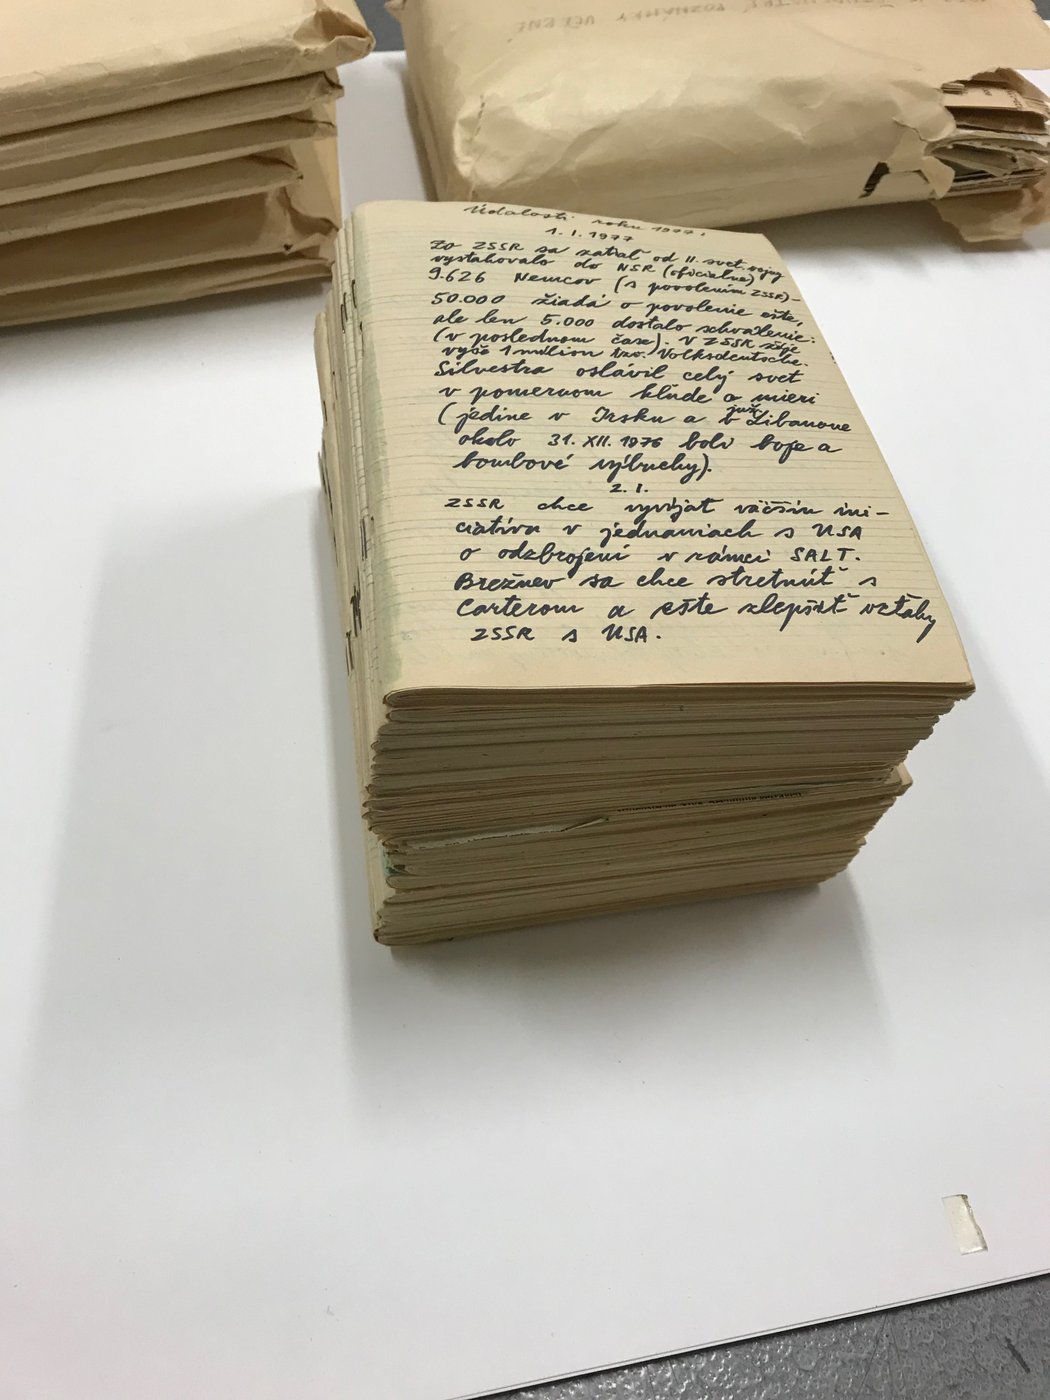 Udalosti roku 1977:
1. I. 1977
Zo ZSSR sa zatiaľ od II. svet. vojny
vysťahovalo do NSR (oficiálne)
9.626 Nemcov (s povolením ZSSR)-
50.000 žiadá o povolenie ešte,
ale len 5.000 dostalo schválenie:
(v poslednom čase). V ZSSR žije
vyše 1 milion tzv. Volksdeutsche.
Silvestra oslávil celý svet
v pomernom klude a mieri
(jedine v Irsku a už v Libanone
okolo 31. XII. 1976 boli boje a
bombové výbuchy).
2. I.
ZSSR chce vyvíjať väčšiu ini-
ciatívu v jednaniach s USA
o odzbrojení v rámci SALT.
Brežnev sa chce stretnúť s
Carterom a ešte zlepšiť vzťahy
ZSSR s USA.